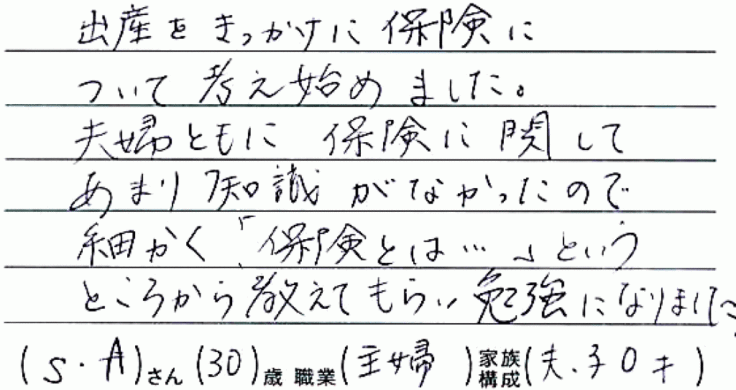 出産をきっかけに保険に
ついて考え始めました。
夫婦ともに 保険に関して
あまり知識がなかったので
細かく「保険とは…」という
ところから教えてもらい勉強になりました。
(S・A)さん(30)歳 職業(主婦 )家族構成(夫、子0才)